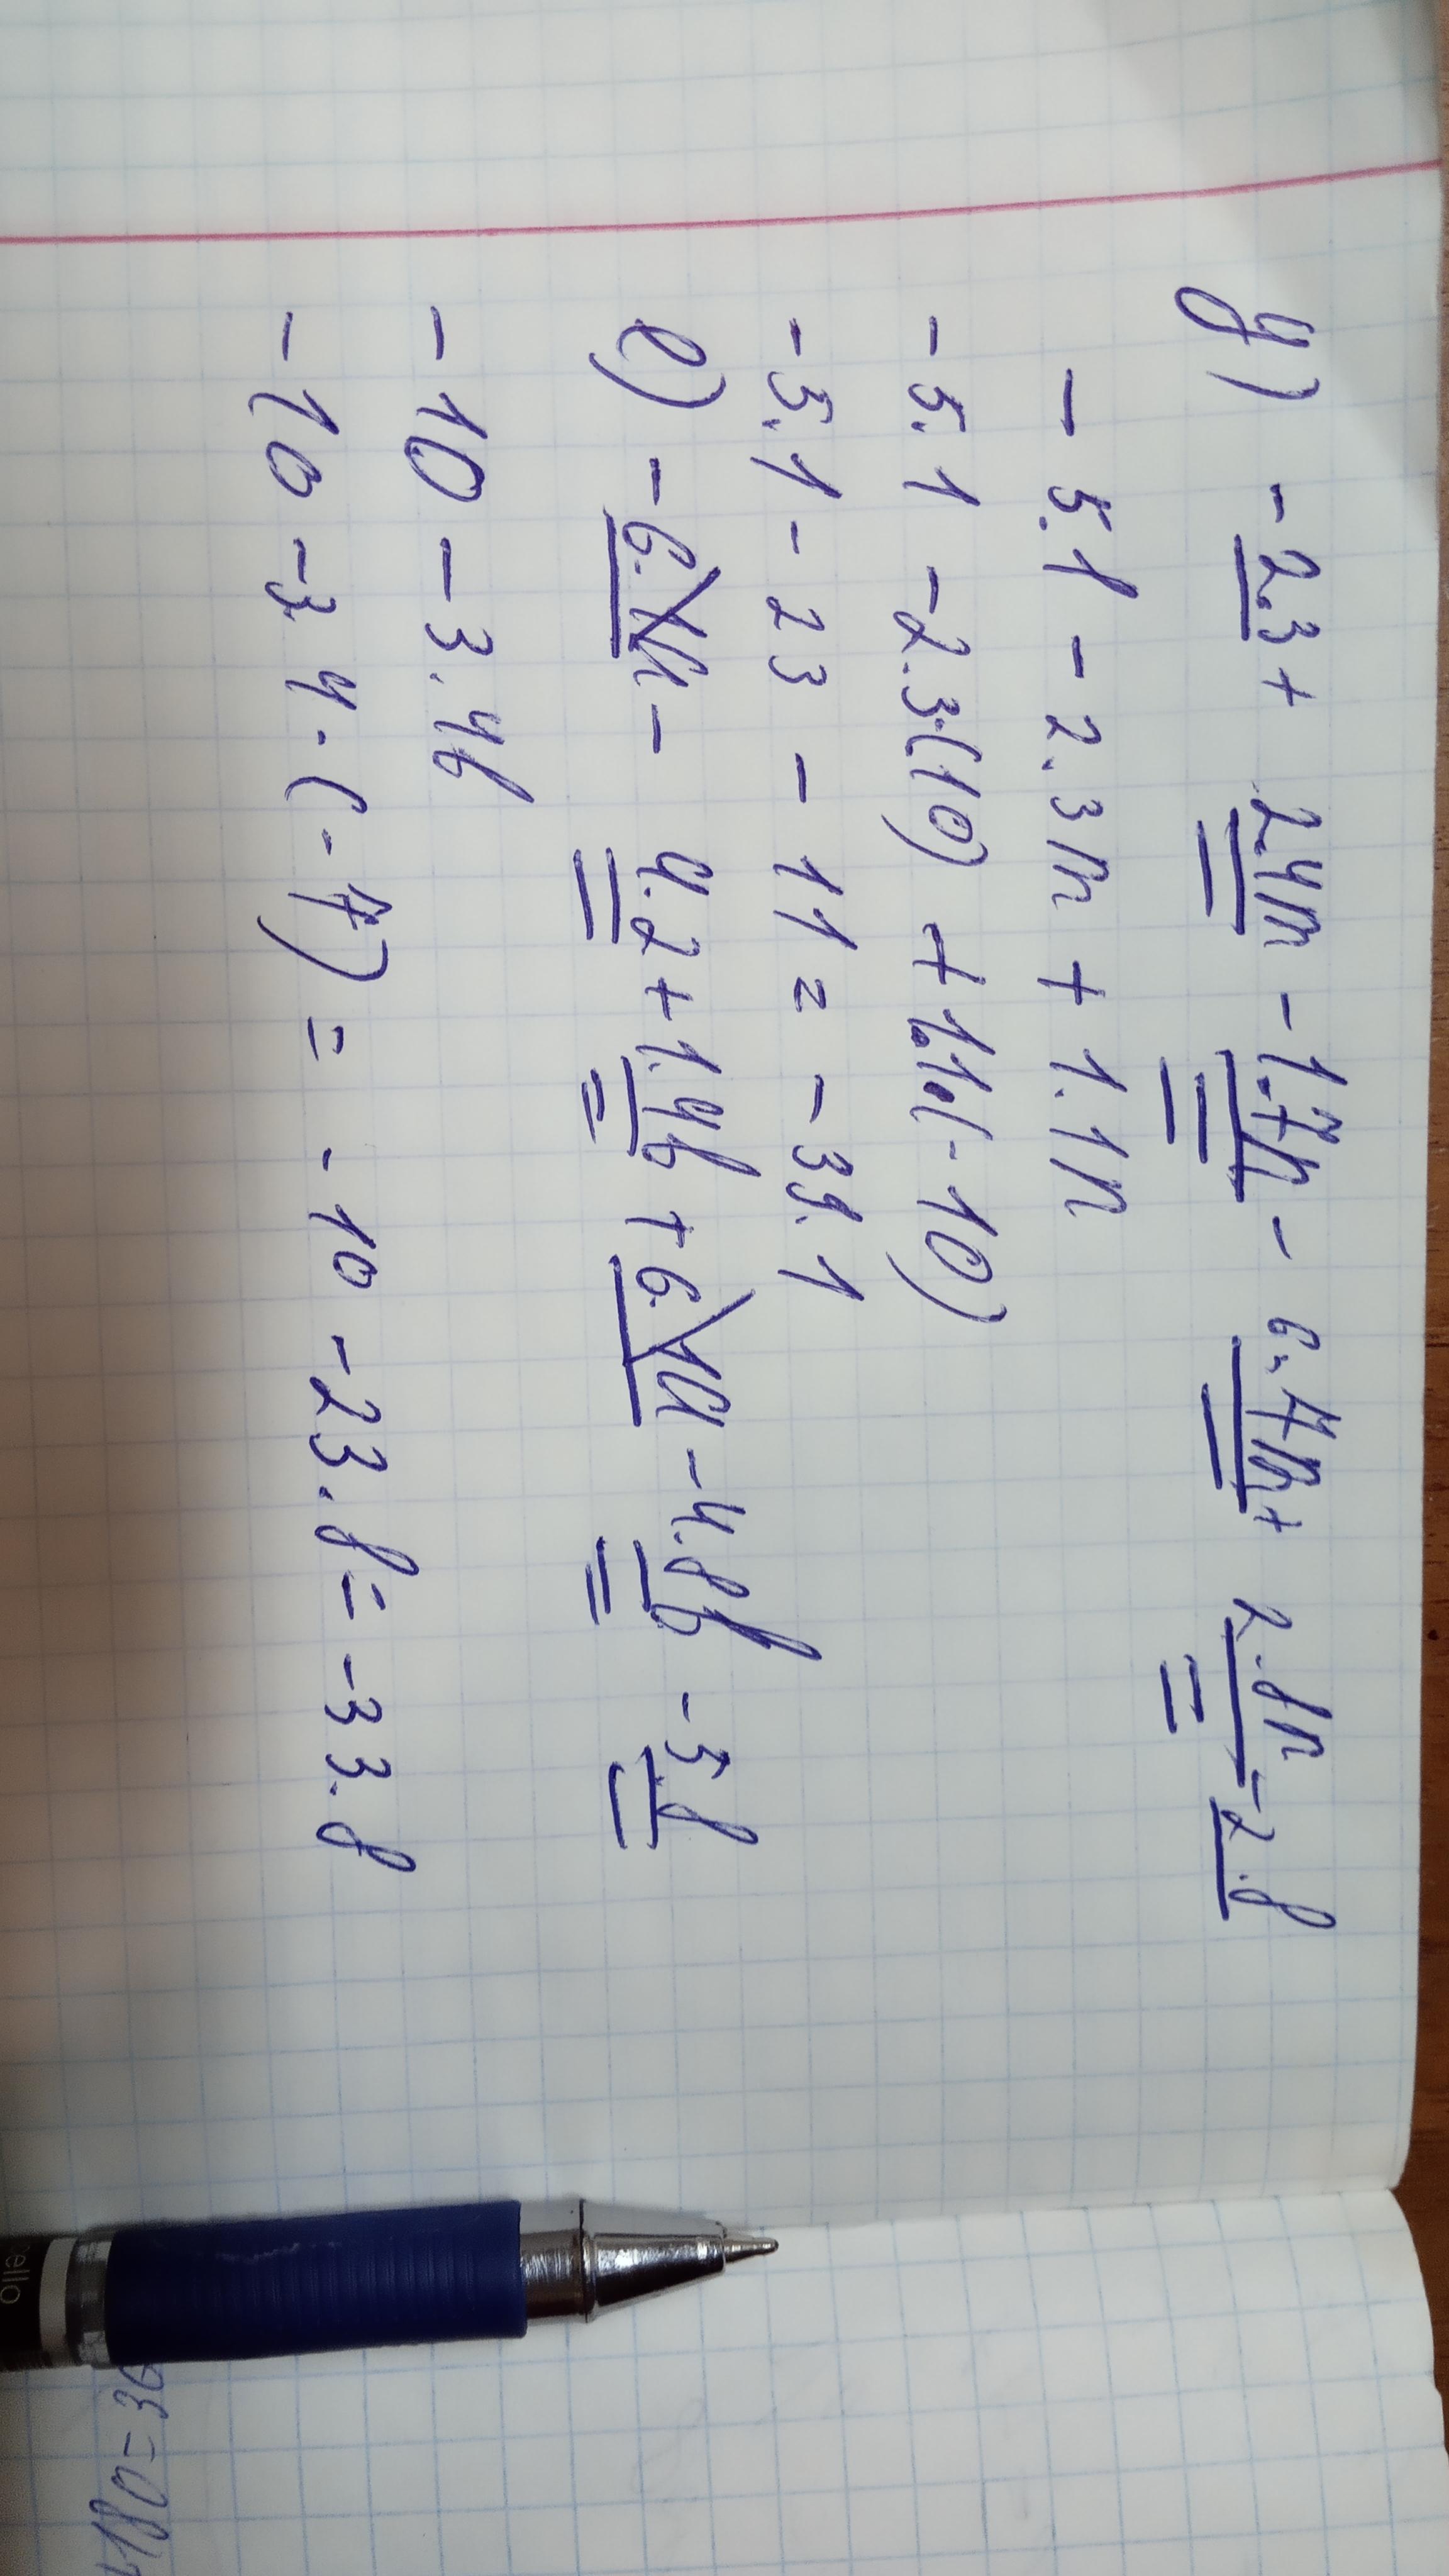 д) -2.3 + 2.4m - 1.7n - 6.7m + 2.8n - 2.8
- 5.1 - 2.3m + 1.1n
- 5.1 -2.3·(10) + 1.1·(-10)
-5.1 - 23 - 11 = -39.1
е) -6.1a - 4.2 + 1.4b + 6.1a - 4.8b - 5.8
- 10 - 3.4b
- 10 - 3.4·(-7) = - 10 - 23.8 = -33.8
180=36
cello